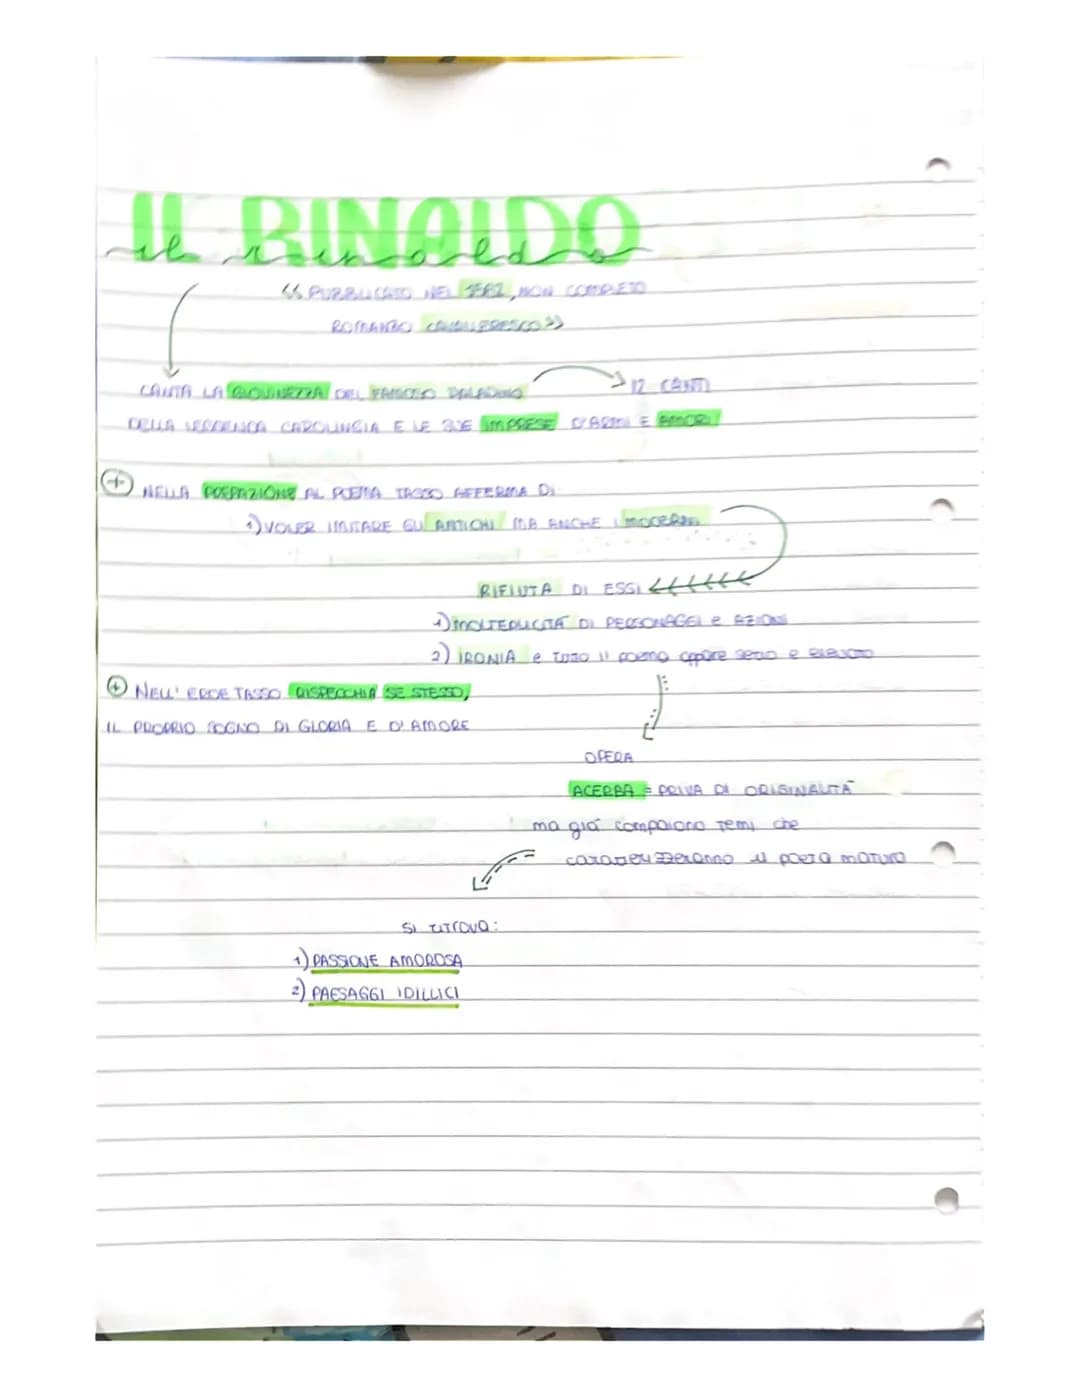 IL RINALDO
il rinaldo
<< PUBBLICATO NEL 1562, NON COMPLETO
ROMANZO CAVALLERESCO >>
CANTA LA GIOVINEZZA DEL FAMOSO PALADINO
12 CANTI
DELLA LEGGENDA CAROLINGIA E LE SUE IMPRESE D'ARMI E AMORI
+ NELLA PREFAZIONE AL POEMA TASSO AFFERMA DI
1) VOLER IMITARE GLI ANTICHI MA ANCHE I MODERNI
RIFIUTA DI ESSI
1) MOLTEPLICITÀ DI PERSONAGGI e AZIONI
2) IRONIA e TUTTO il poema appare serio e elevato
+ NELL'EROE TASSO RISPECCHIA SE STESSO,
IL PROPRIO SOGNO DI GLORIA E D'AMORE
OPERA
ACERBA = PRIVA DI ORIGINALITÀ
ma già compaiono temi che
caratterizzeranno il poeta maturo
SI RITROVA:
1) PASSIONE AMOROSA
2) PAESAGGI IDILLICI